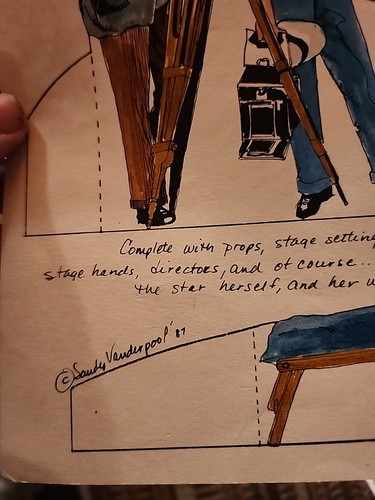 Complete with props, stage setting
stage hands, directors, and of course...
the star herself, and her w
© Sandy Vanderpool '87